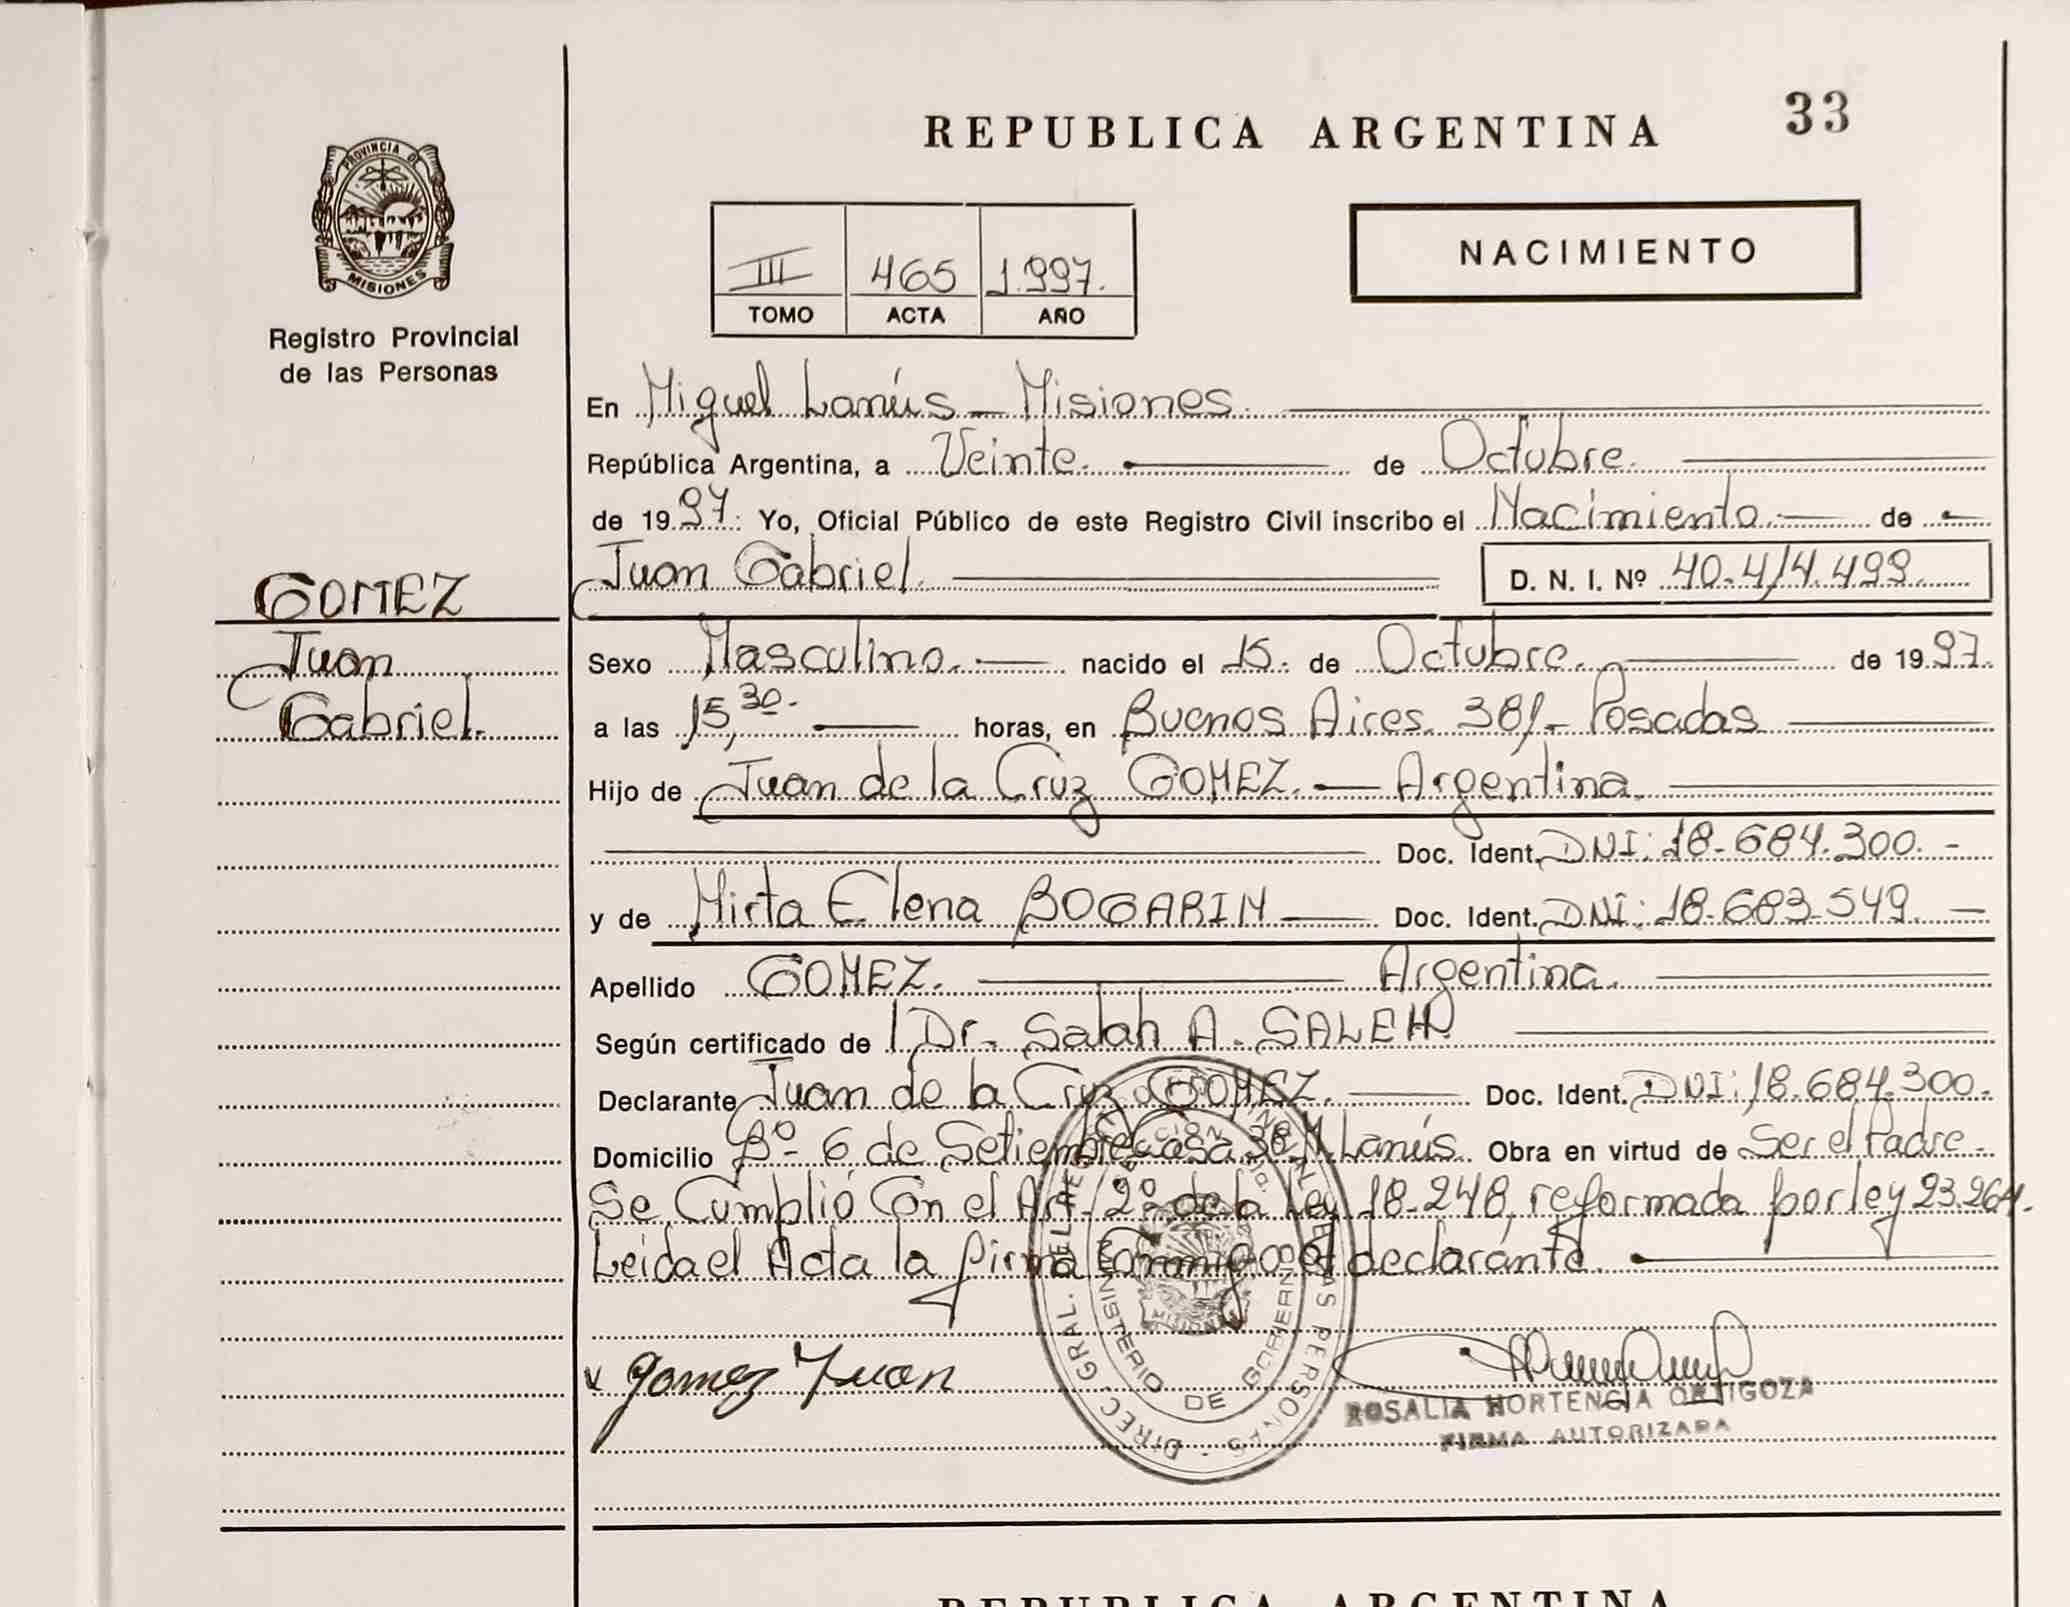 REPUBLICA ARGENTINA 33
PROVINCIA DE
MISIONES
Registro Provincial
de las Personas
III 465 1.997.
TOMO ACTA AÑO
NACIMIENTO
En Miguel Lanús - Misiones.
República Argentina, a Veinte. de Octubre.
de 1997. Yo, Oficial Público de este Registro Civil inscribo el Nacimiento. de
GOMEZ
Juan
Gabriel.
Juan Gabriel. D. N. I. Nº 40.414.499.
Sexo Masculino. nacido el 15. de Octubre. de 1997.
a las 15,30. horas, en Buenos Aires. 381.- Posadas
Hijo de Juan de la Cruz GOMEZ. Argentina.
Doc. Ident. DNI: 18.684.300. -
y de Mirta Elena BOGARIN Doc. Ident. DNI: 18.683.549. -
Apellido GOMEZ. Argentina.
Según certificado de Dr. Salah A. SALEH
Declarante Juan de la Cruz GOMEZ. Doc. Ident. DNI: 18.684.300.
Domicilio Bº 6 de Setiembre Casa 38 M. Lanús. Obra en virtud de Ser el Padre
Se Cumplió Con el Art. 2º de la Ley 18.248, reformada por ley 23.264.
Leida el Acta la firma Conmigo el declaránte.
Gomez Juan
DIREC. GRAL. DEL REGISTRO PROVINCIAL DE LAS PERSONAS
MINISTERIO DE GOBIERNO
ROSALIA HORTENCIA ORTIGOZA
FIRMA AUTORIZADA
REPUBLICA ARGENTINA